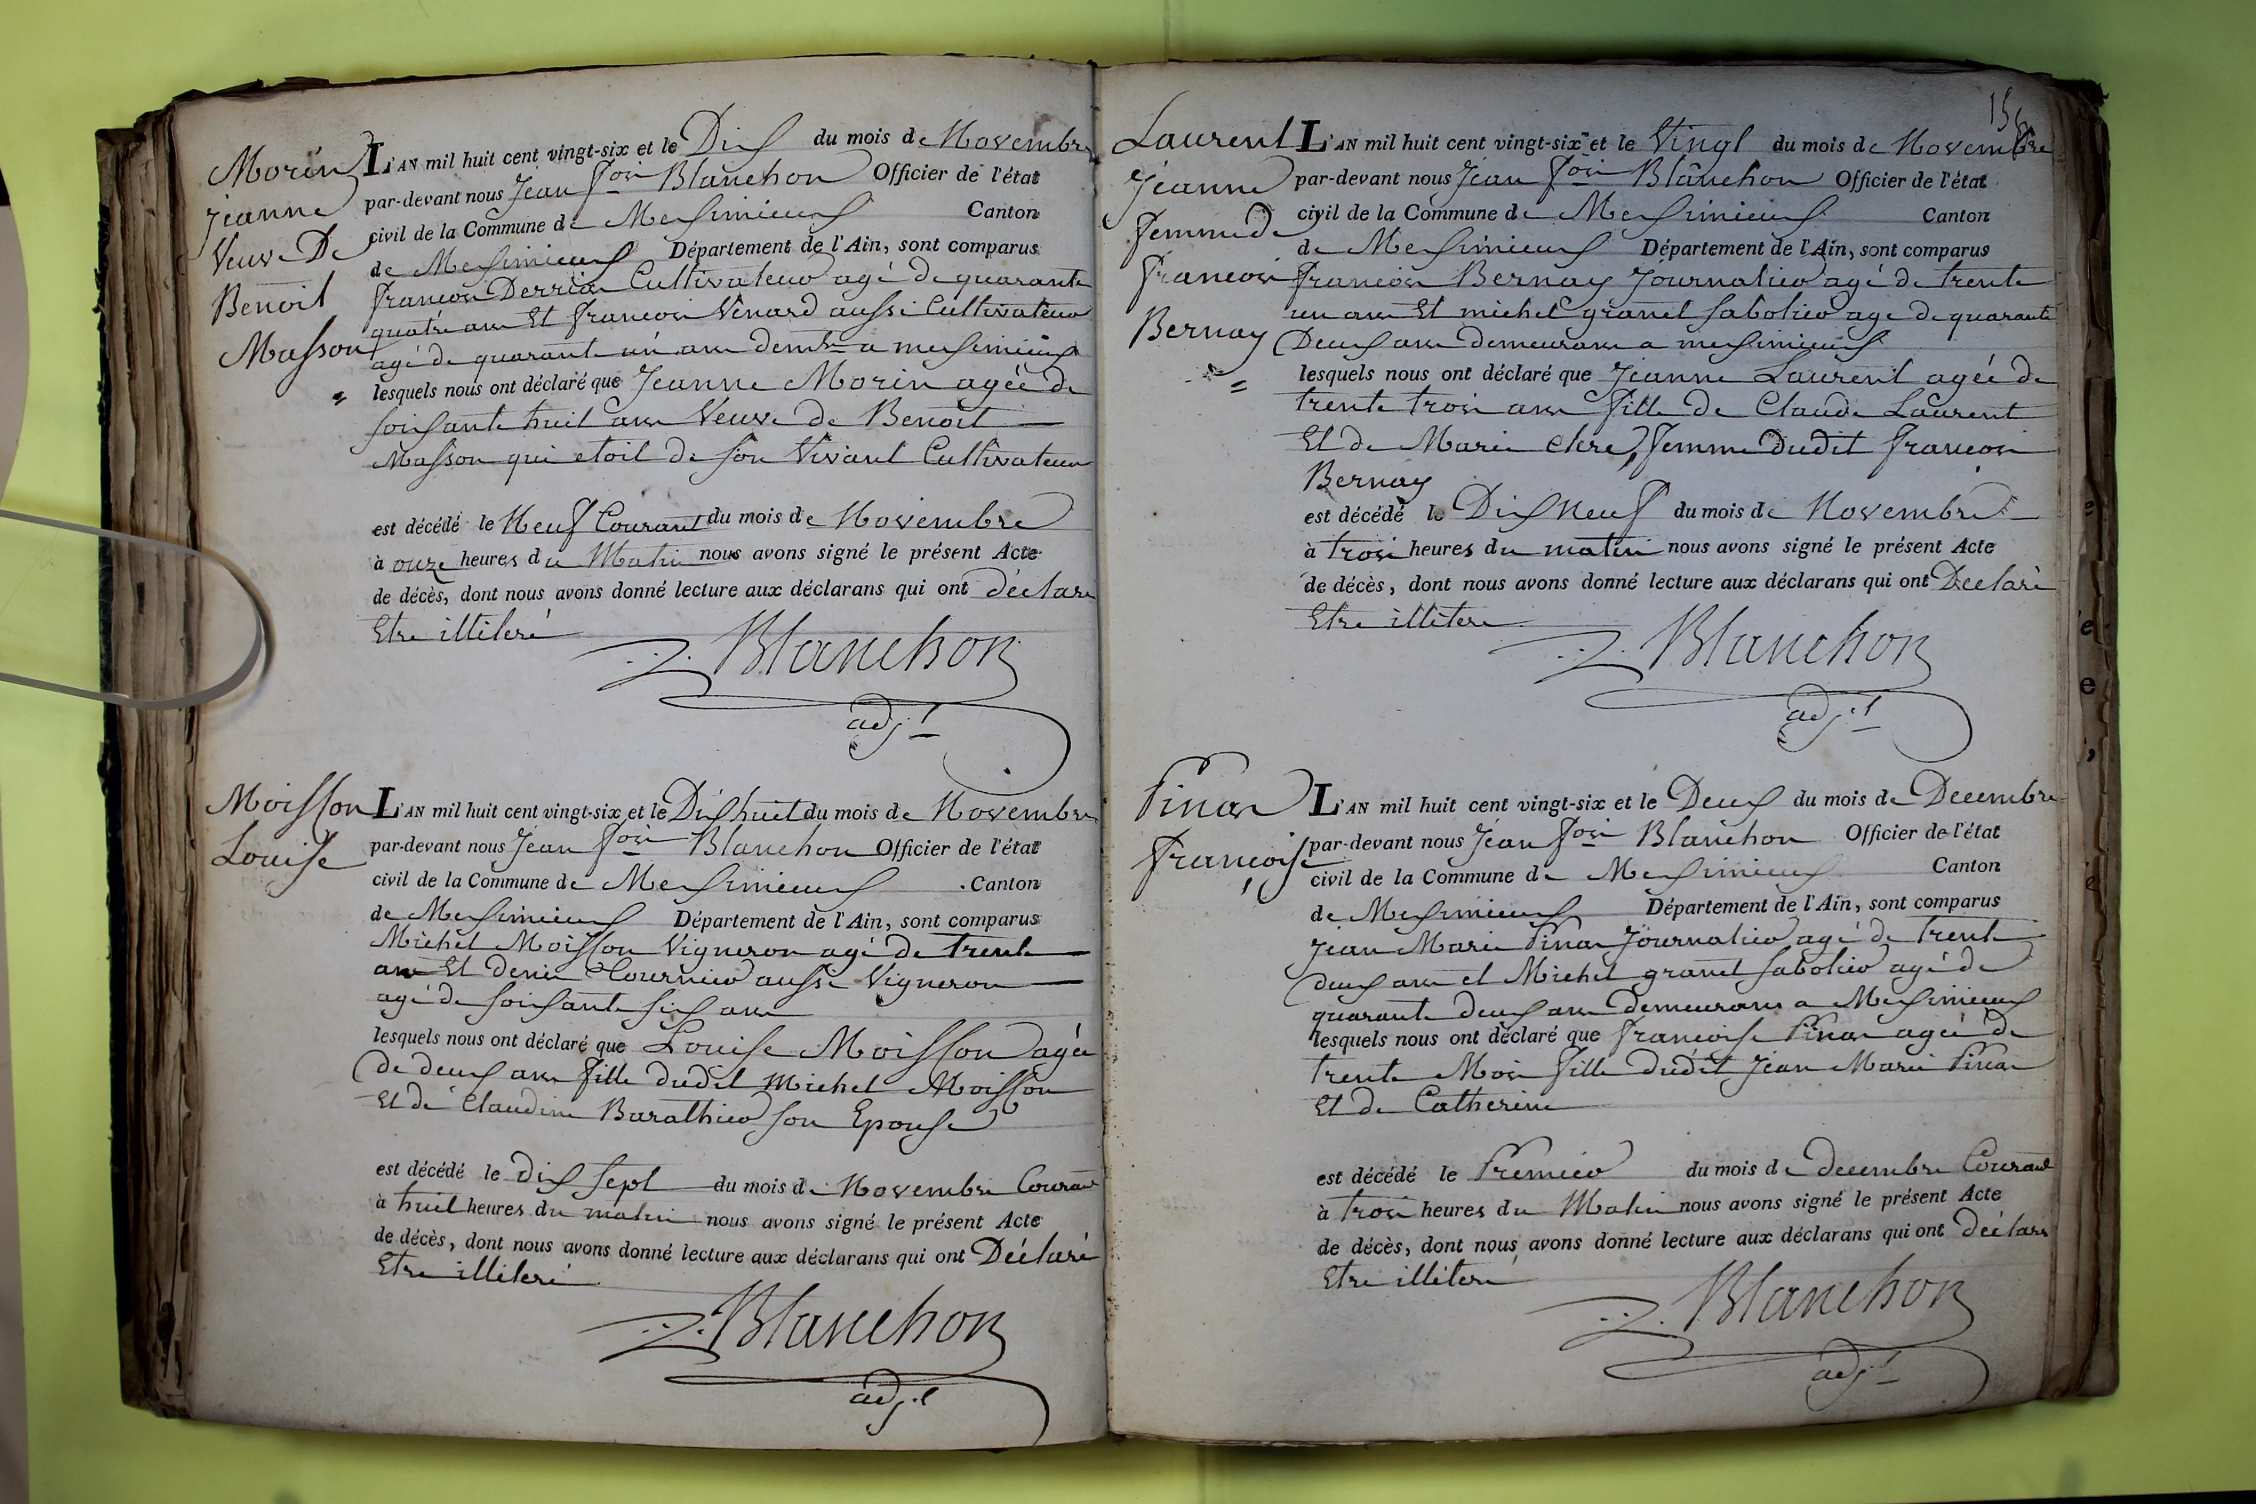 Morin
Jeanne
Veuve De
Benoit
Masson
L'AN mil huit cent vingt-six et le Dix du mois de Novembre
par-devant nous Jean fois Blanchon Officier de l'état
civil de la Commune de Meximieux Canton
de Meximieux Département de l'Ain, sont comparus
francois Derrias Cultivateur agé de quarante
quatre ans Et francois Venard aussi Cultivateur
agé de quarante un ans demts a meximieux
lesquels nous ont déclaré que Jeanne Morin agée de
soixante huit ans Veuve de Benoit
Masson qui etoit de son Vivant Cultivateur
est décédé le Neuf Courant du mois de Novembre
à onze heures du Matin nous avons signé le présent Acte
de décès, dont nous avons donné lecture aux déclarans qui ont déclaré
Etre illiteré
Blanchon
adjt
Moisson
Louise
L'AN mil huit cent vingt-six et le Dix huit du mois de Novembre
par-devant nous Jean fois Blanchon Officier de l'état
civil de la Commune de Meximieux Canton
de Meximieux Département de l'Ain, sont comparus
Michel Moisson Vigneron agé de trente
ans Et denis Tournier aussi Vigneron
agé de soixante six ans
lesquels nous ont déclaré que Louise Moisson agée
De deux ans fille dudit Michel Moisson
Et de Claudine Barathier son Epouse
est décédé le dix sept du mois de Novembre Courant
à huit heures du matin nous avons signé le présent Acte
de décès, dont nous avons donné lecture aux déclarans qui ont Déclaré
Etre illiteré
Blanchon
adjt
Laurent
Jeanne
femme de
francois
Bernay
L'AN mil huit cent vingt-six et le Vingt du mois de Novembre
par-devant nous Jean fois Blanchon Officier de l'état
civil de la Commune de Meximieux Canton
de Meximieux Département de l'Ain, sont comparus
francois Bernay Journalier agé de trente
un ans Et michel granet sabotier age de quarante
Deux ans demeurans a meximieux
lesquels nous ont déclaré que Jeanne Laurent agée de
trente trois ans fille de Claude Laurent
Et de Marie Chre, femme Dudit francois
Bernay
est décédé le Dix Neuf du mois de Novembre
à trois heures du matin nous avons signé le présent Acte
de décès, dont nous avons donné lecture aux déclarans qui ont Déclaré
Etre illitere
Blanchon
adjt
Pinas
francoise
L'AN mil huit cent vingt-six et le Deux du mois de Decembre
par-devant nous Jean fois Blanchon Officier de l'état
civil de la Commune de Meximieux Canton
de Meximieux Département de l'Ain, sont comparus
Jean Marie Pinas Journalier agé de trente
deux ans et Michel granet sabotier agé de
quarante deux ans demeurans a Meximieux
lesquels nous ont déclaré que francoise Pinas agée de
trente Mois fille dudit Jean Marie Pinas
Et de Catherine
est décédé le Premier du mois de decembre Courant
à trois heures du Matin nous avons signé le présent Acte
de décès, dont nous avons donné lecture aux déclarans qui ont déclaré
Etre illiteré
Blanchon
adjt